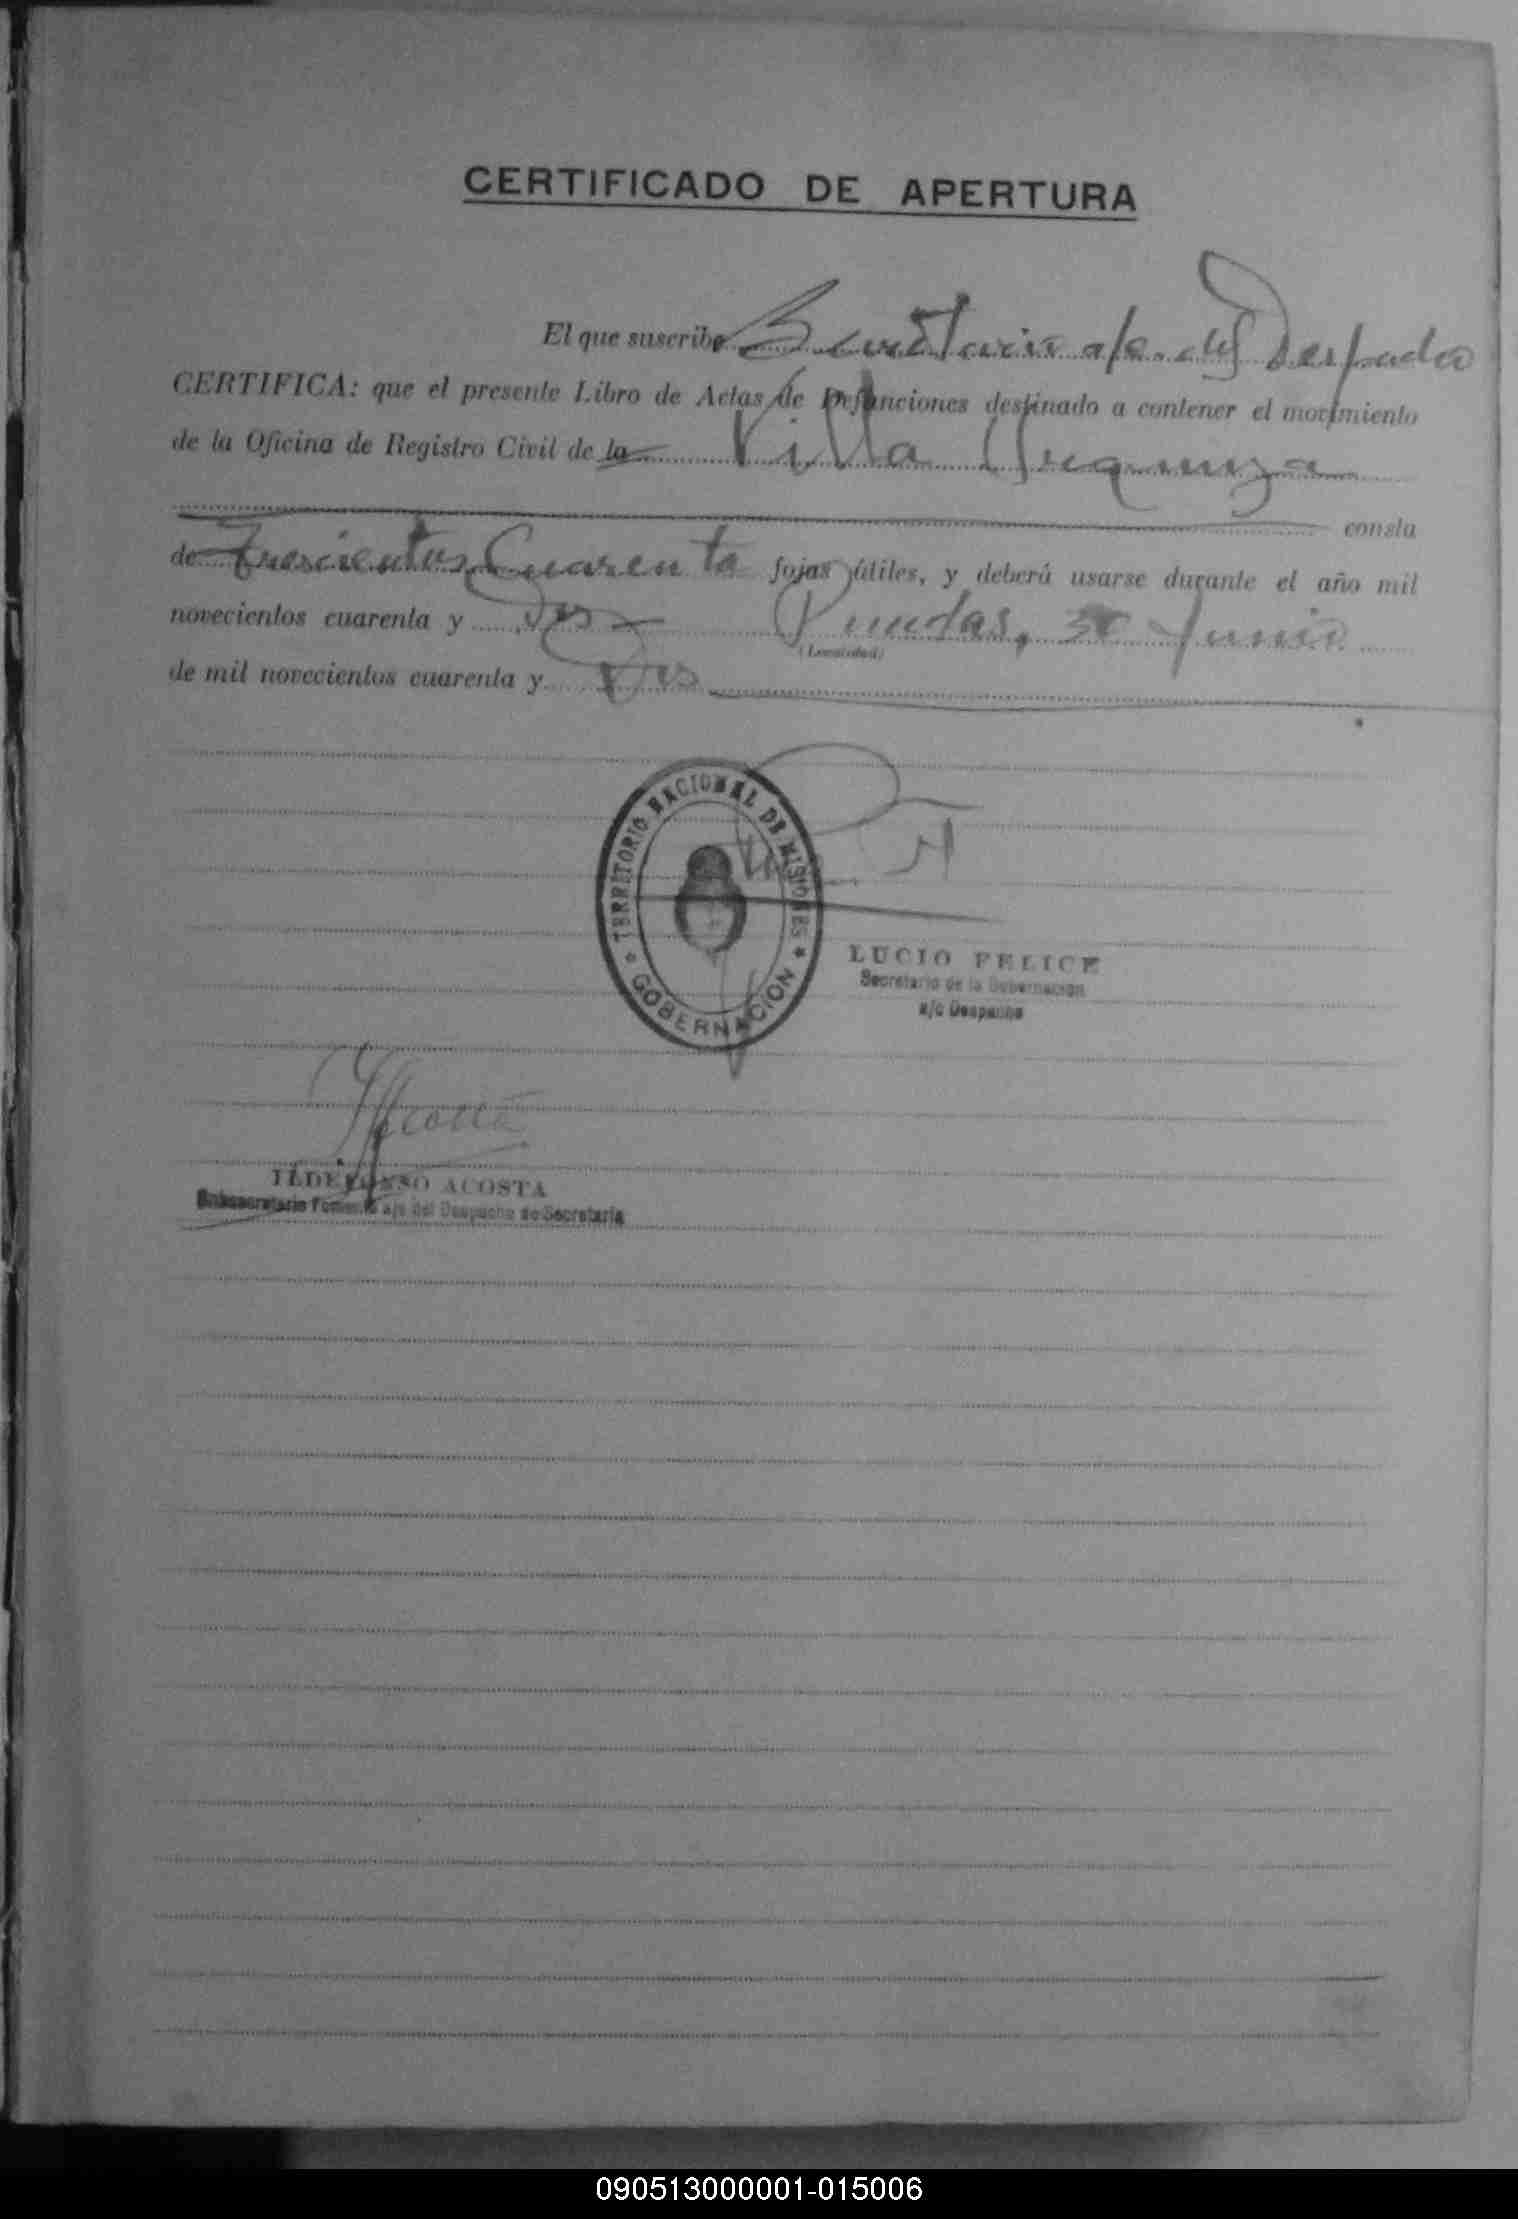 CERTIFICADO DE APERTURA
El que suscribe Secretario a/c. del Despacho
CERTIFICA: que el presente Libro de Actas de Defunciones destinado a contener el movimiento
de la Oficina de Registro Civil de la Villa Urquiza
consta
de Trescientos Cuarenta fojas útiles, y deberá usarse durante el año mil
novecientos cuarenta y Dos Posadas, Junio
(Localidad)
de mil novecientos cuarenta y Dos
TERRITORIO NACIONAL DE MISIONES
* GOBERNACION *
LUCIO FELICE
Secretario de la Gobernación
a/c Despacho
Acosta
ILDEFONSO ACOSTA
Subsecretario Fomento a/c del Despacho de Secretaría
090513000001-015006